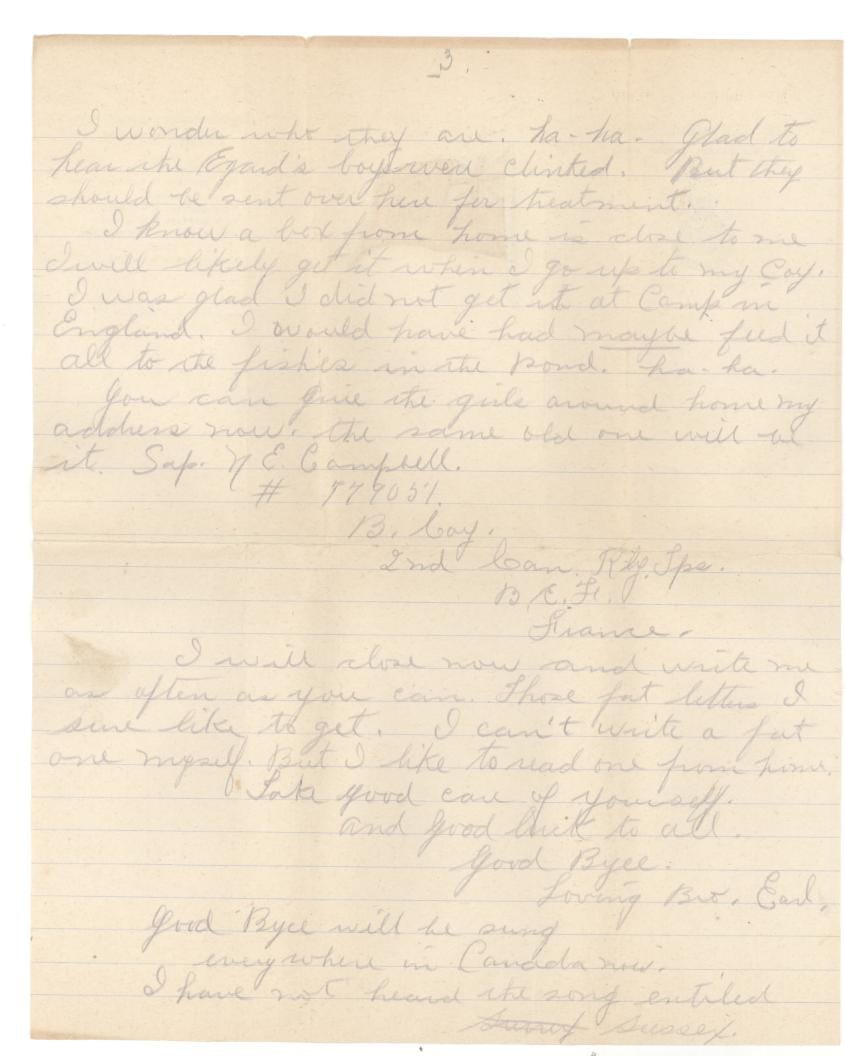 3.
I wonder who they are. ha-ha. Glad to
hear the Egard's boys were clinked. But they
should be sent over here for treatment.
I know a box from home is close to me
I will likely get it when I go up to my Coy.
I was glad I did not get it at Camp in
England. I would have had maybe feed it
all to the fishes in the pond. ha-ha.
You can give the girls around home my
address now. the same old one will be
it. Sap. N E. Campbell.
# 779051.
B. Coy.
2nd Can. Rly. Tps.
B. E. F.
France.
I will close now and write me
as often as you can. Those fat letters I
sure like to get. I can't write a fat
one myself. But I like to read one from home.
Take good care of yourself.
And Good luck to all.
Good Byee.
Loving Bro. Earl.
Good Byee will be sung
everywhere in Canada now.
I have not heard the song entiled
Sussex.